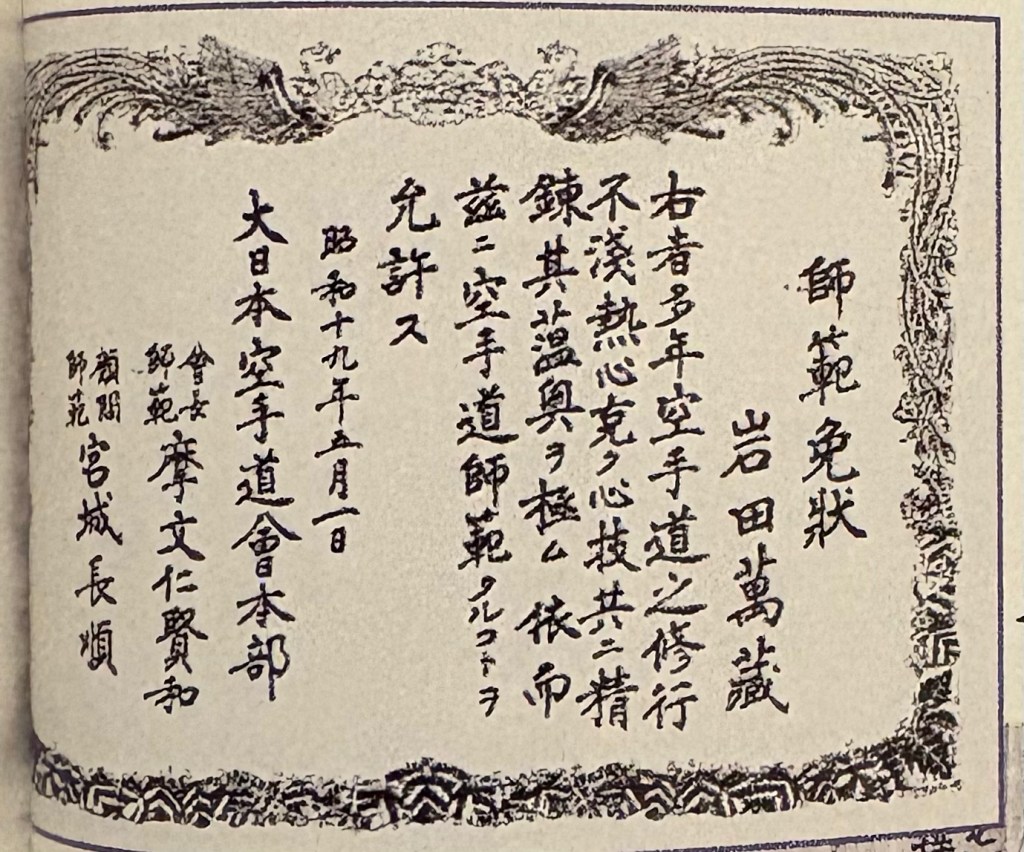 師範免狀
岩田萬藏
右者多年空手道之修行
不淺熱心克ク心技共ニ精
鍊其薀奥ヲ極ム 依而
茲ニ空手道師範タルコトヲ
允許ス
昭和十九年五月一日
大日本空手道會本部
會長
師範 摩文仁賢和
顧問
師範 宮城長順